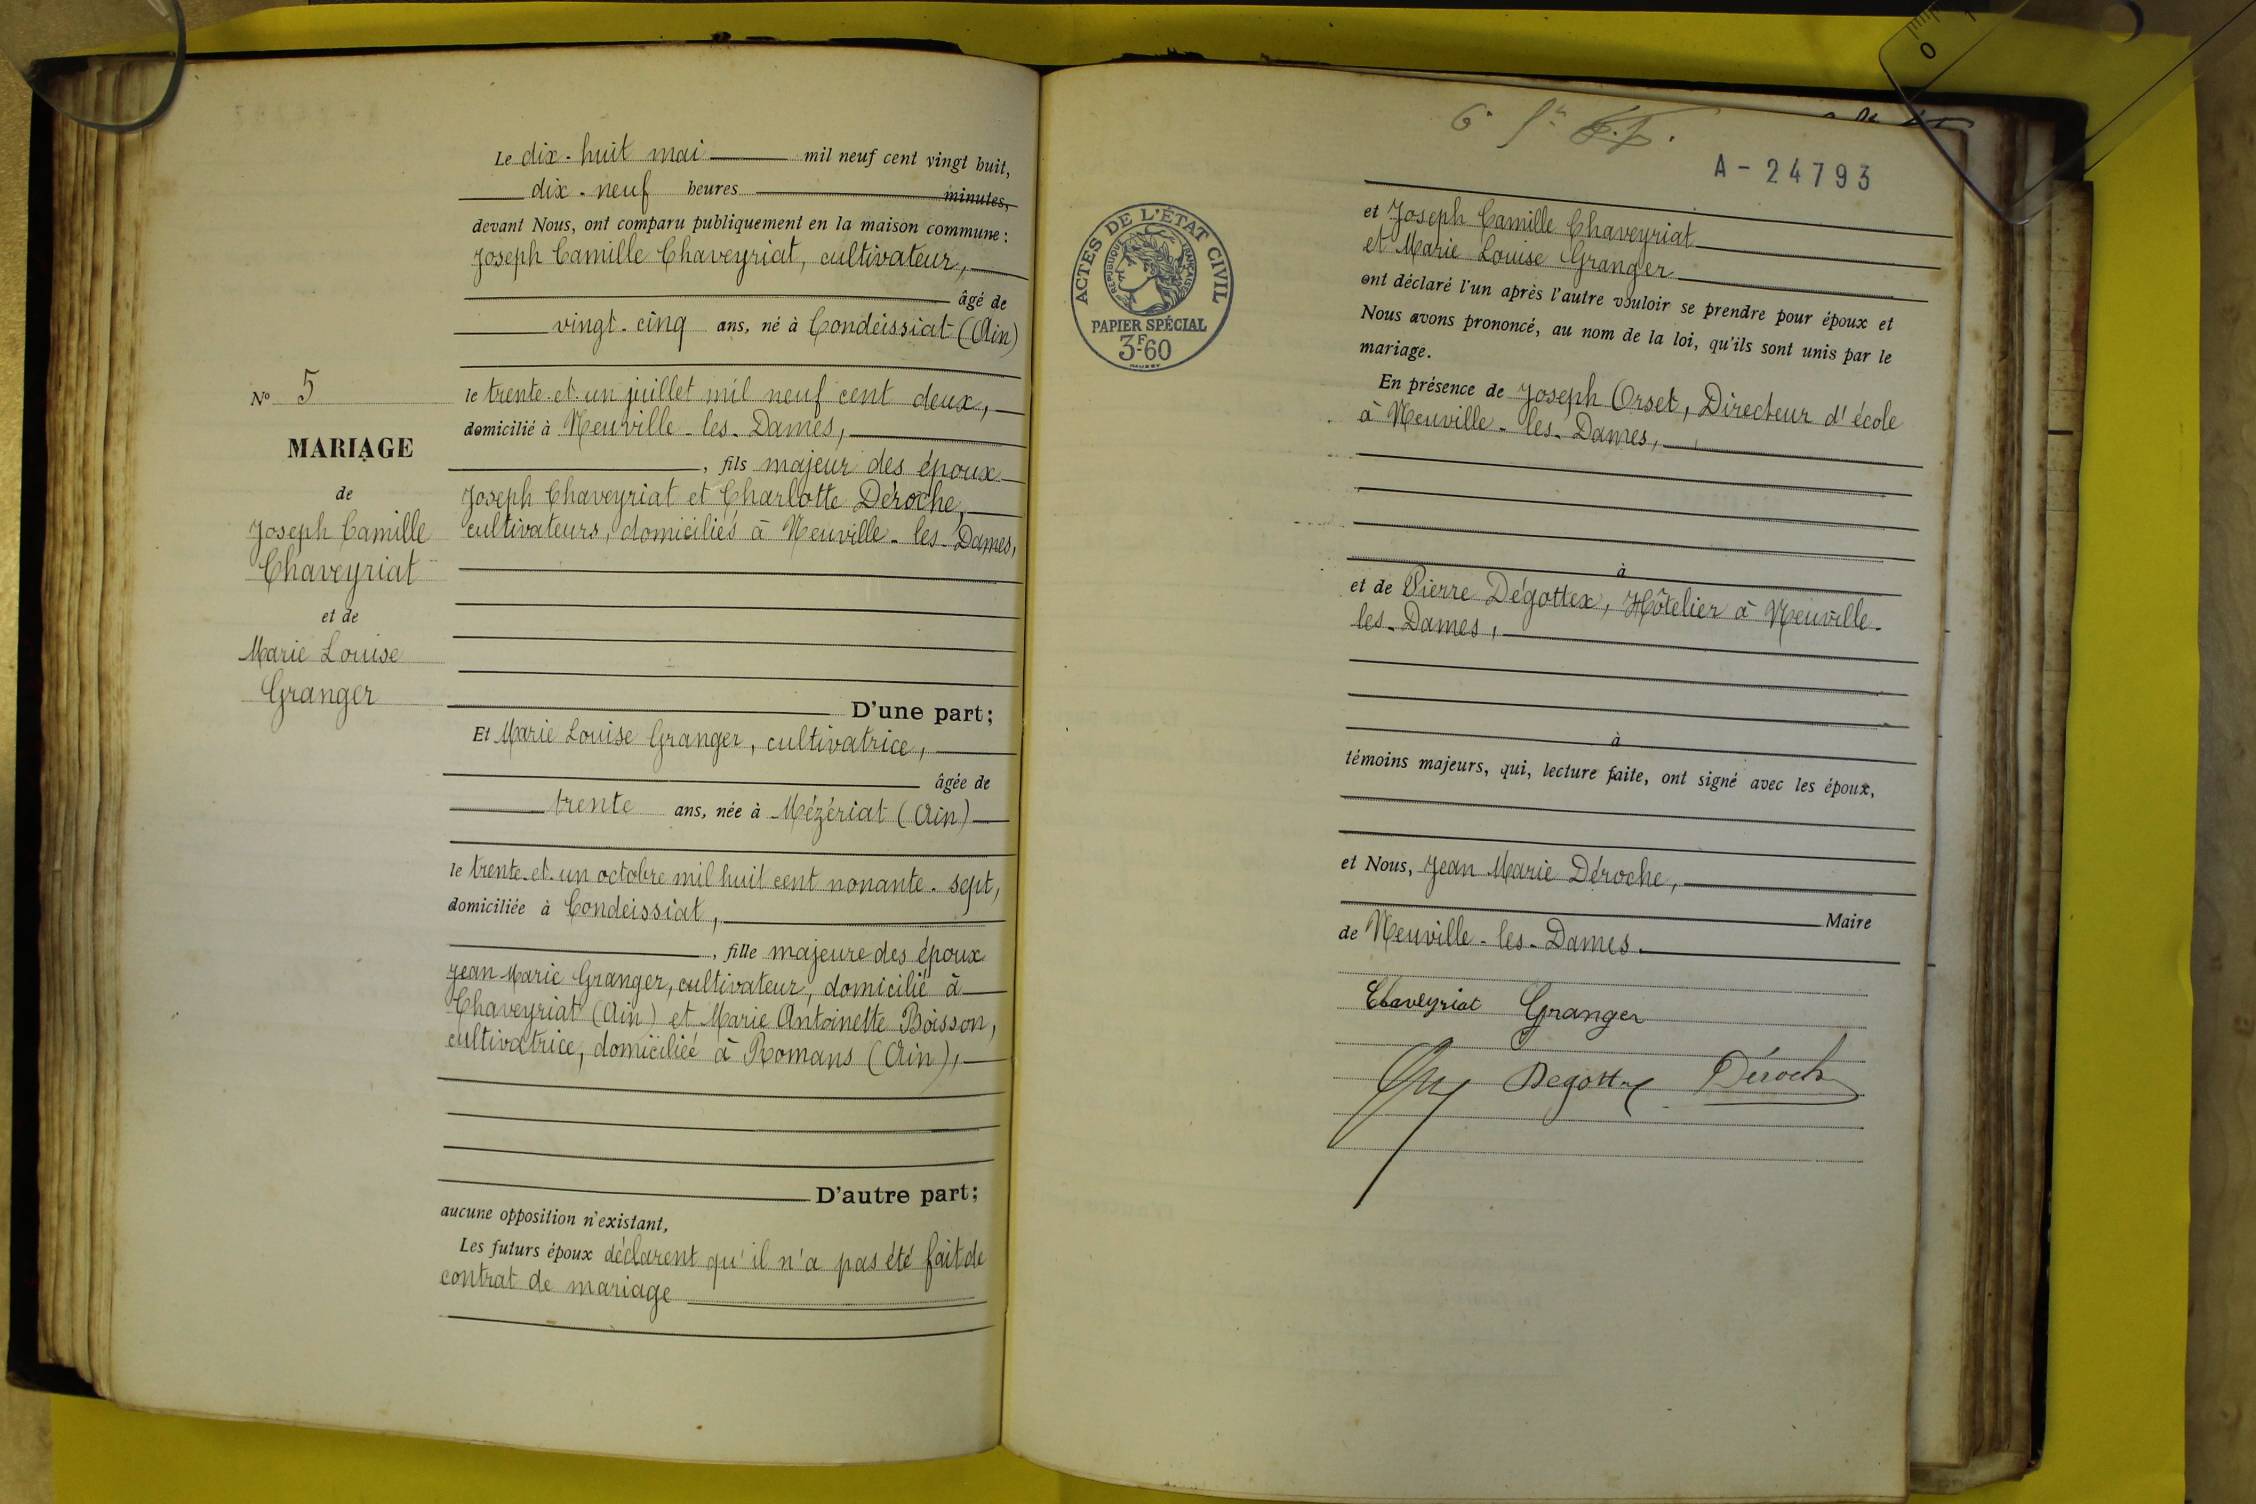 Le dix-huit mai mil neuf cent vingt huit,
dix-neuf heures minutes,
devant Nous, ont comparu publiquement en la maison commune :
Joseph Camille Chaveyriat, cultivateur,
âgé de
vingt-cinq ans, né à Condeissiat (Ain)
le trente-et-un juillet mil neuf cent deux,
domicilié à Neuville-les-Dames,
, fils majeur des époux
Joseph Chaveyriat et Charlotte Déroche,
cultivateurs, domiciliés à Neuville-les-Dames,
D'une part;
Et Marie Louise Granger, cultivatrice,
âgée de
trente ans, née à Mézériat (Ain)
le trente-et-un octobre mil huit cent nonante-sept,
domiciliée à Condeissiat,
, fille majeure des époux
Jean Marie Granger, cultivateur, domicilié à
Chaveyriat (Ain) et Marie Antoinette Boisson,
cultivatrice, domiciliée à Romans (Ain),
D'autre part;
aucune opposition n'existant,
Les futurs époux déclarent qu'il n'a pas été fait de
contrat de mariage
N° 5
MARIAGE
de
Joseph Camille
Chaveyriat
et de
Marie Louise
Granger
A-24793
ACTES DE L'ÉTAT CIVIL
RÉPUBLIQUE FRANÇAISE
PAPIER SPÉCIAL
3F60
et Joseph Camille Chaveyriat
et Marie Louise Granger
ont déclaré l'un après l'autre vouloir se prendre pour époux et
Nous avons prononcé, au nom de la loi, qu'ils sont unis par le
mariage.
En présence de Joseph Orset, Directeur d'école
à Neuville-les-Dames,
à
et de Pierre Dégottex, Hôtelier à Neuville-
les-Dames,
à
témoins majeurs, qui, lecture faite, ont signé avec les époux,
et Nous, Jean Marie Déroche,
Maire
de Neuville-les-Dames.
Chaveyriat Granger
Degottex Déroche
0 1